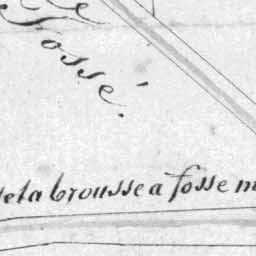 Fossé.
dela brousse a fosse m